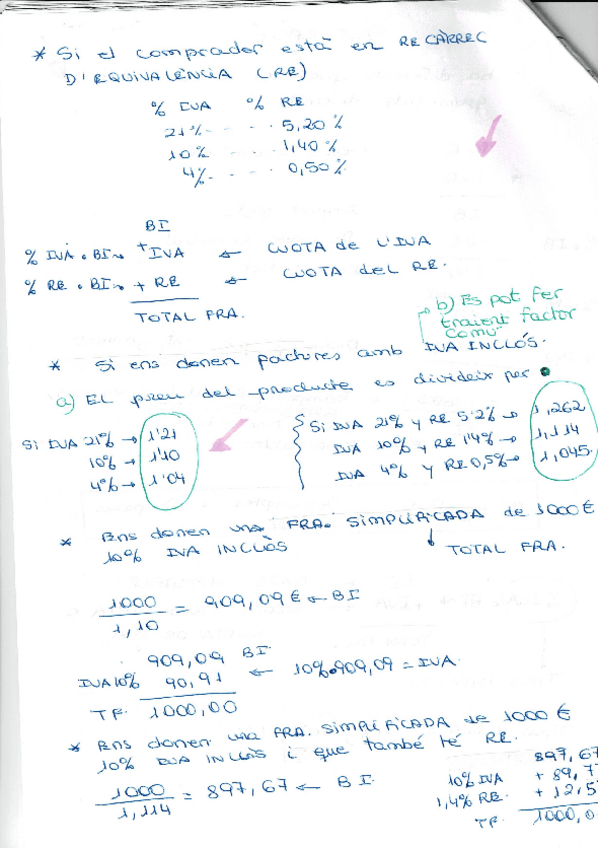 * Si el comprador està en RECÀRREC
D'EQUIVALÈNCIA (RE)
% IVA % RE
21% - . . . 5,20%
10% . . . 1,40%
4% - . . . 0,50%
BI
% IVA . BI → + IVA ← CUOTA de L'IVA
% RE . BI → + RE ← CUOTA del RE.
TOTAL FRA.
b) Es pot fer
traient factor
comú
* Si ens donen factures amb IVA INCLÒS.
a) El preu del producte es divideix per
Si IVA 21% → 1'21
10% → 1'10
4% → 1'04
Si IVA 21% y RE 5'2% → 1,262
IVA 10% y RE 1'4% → 1,114
IVA 4% y RE 0,5% → 1,045.
* Ens donen una FRA. SIMPLIFICADA de 1000€
10% IVA INCLÒS
↓ TOTAL FRA.
1000
1,10
= 909,09€ ← BI
909,09 BI
IVA 10% 90,91 ← 10%.909,09 = IVA.
TF. 1000,00
* Ens donen una FRA. SIMPLIFICADA de 1000€
10% IVA INCLÒS i que també té RE.
1000
1,114
= 897,67 ← BI
897,67
10% IVA + 89,7
1,4% RE. + 12,5
TF. 1000,0